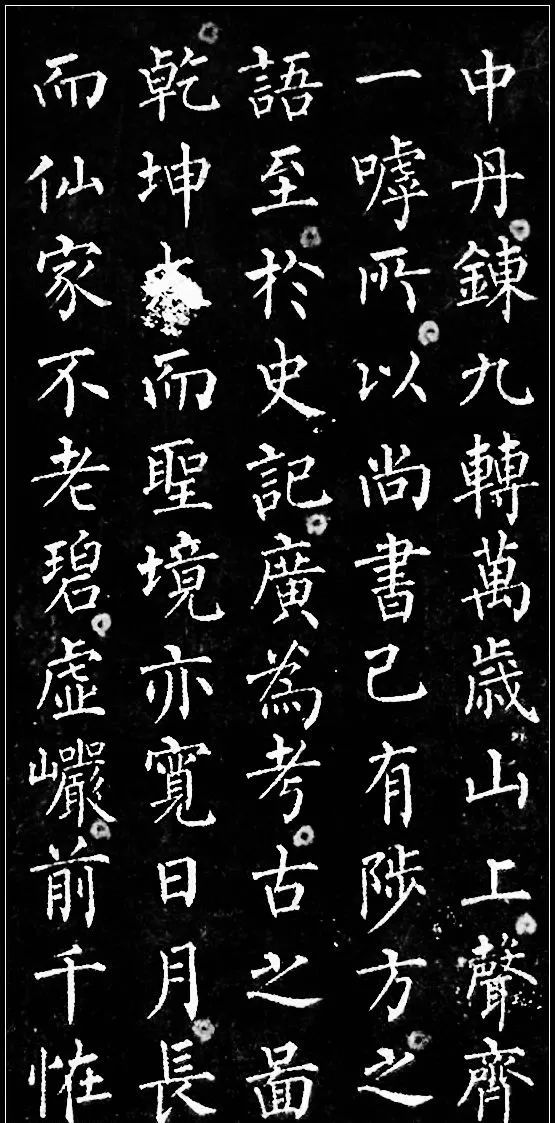 中丹鍊九轉萬歲山上聲齊
一嘑所以尚書已有陟方之
語至於史記廣為考古之啚
乾坤大而聖境亦寬日月長
而仙家不老碧虛巖前千恠